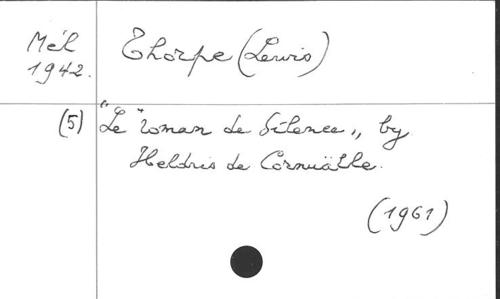 Mél
1942.
Thorpe (Lewis)
(5) "Le "roman de Silence„ by
Heldris de Cornuälle.
(1961)